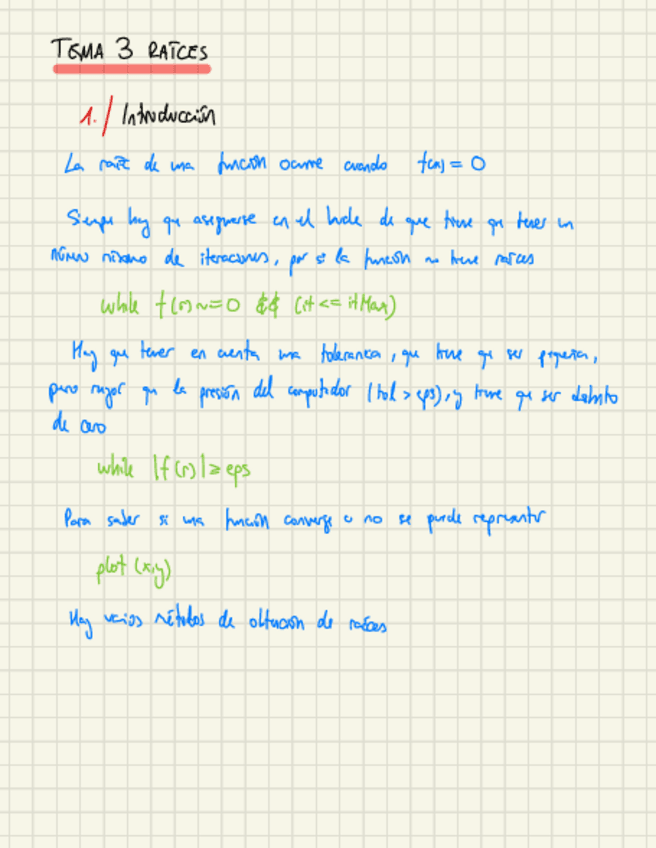 TEMA 3 RAÍCES
1./ Introducción
La raíz de una función ocurre cuando f(x) = 0
Siempre hay que asegurarse en el bucle de que tiene que tener un
número máximo de iteraciones, por si la función no tiene raíces
while f(r) ~= 0 && (it <= itMax)
Hay que tener en cuenta una tolerancia, que tiene que ser pequeña,
pero mayor que la presión del computador (tol > eps), y tiene que ser distinto
de cero
while |f(r)| ≥ eps
Para saber si una función converge o no se puede representar
plot (x,y)
Hay varios métodos de obtención de raíces